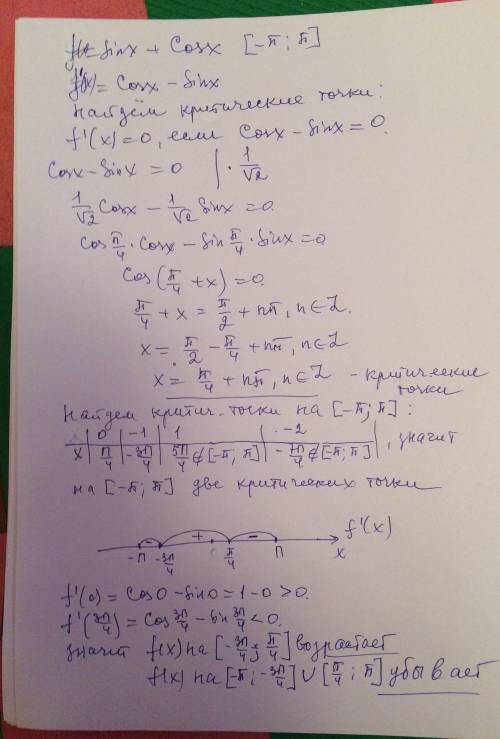 f(x)= Sinx + Cosx [-π; π]
f'(x)= Cosx - Sinx
Найдём критические точки:
f'(x)=0, если Cosx - Sinx = 0.
Cosx - Sinx = 0 | · 1/√2
1/√2 Cosx - 1/√2 Sinx = 0.
Cos π/4 · Cosx - Sin π/4 · Sinx = 0
Cos(π/4 + x) = 0.
π/4 + x = π/2 + πn, n∈Z.
x = π/2 - π/4 + πn, n∈Z
x = π/4 + πn, n∈Z - критические точки
Найдем критич. точки на [-π; π]:
n | 0 | -1 | 1 | -2
x | π/4 | -3π/4 | 5π/4 ∉ [-π; π] | -7π/4 ∉ [-π; π] |, значит
на [-π; π] две критических точки
- + - f'(x)
-π -3π/4 0 π/4 π x
f'(0) = Cos0 - Sin0 = 1 - 0 > 0.
f'(3π/4) = Cos 3π/4 - Sin 3π/4 < 0.
значит f(x) на [-3π/4; π/4] возрастает
f(x) на [-π; -3π/4] ∪ [π/4; π] убывает